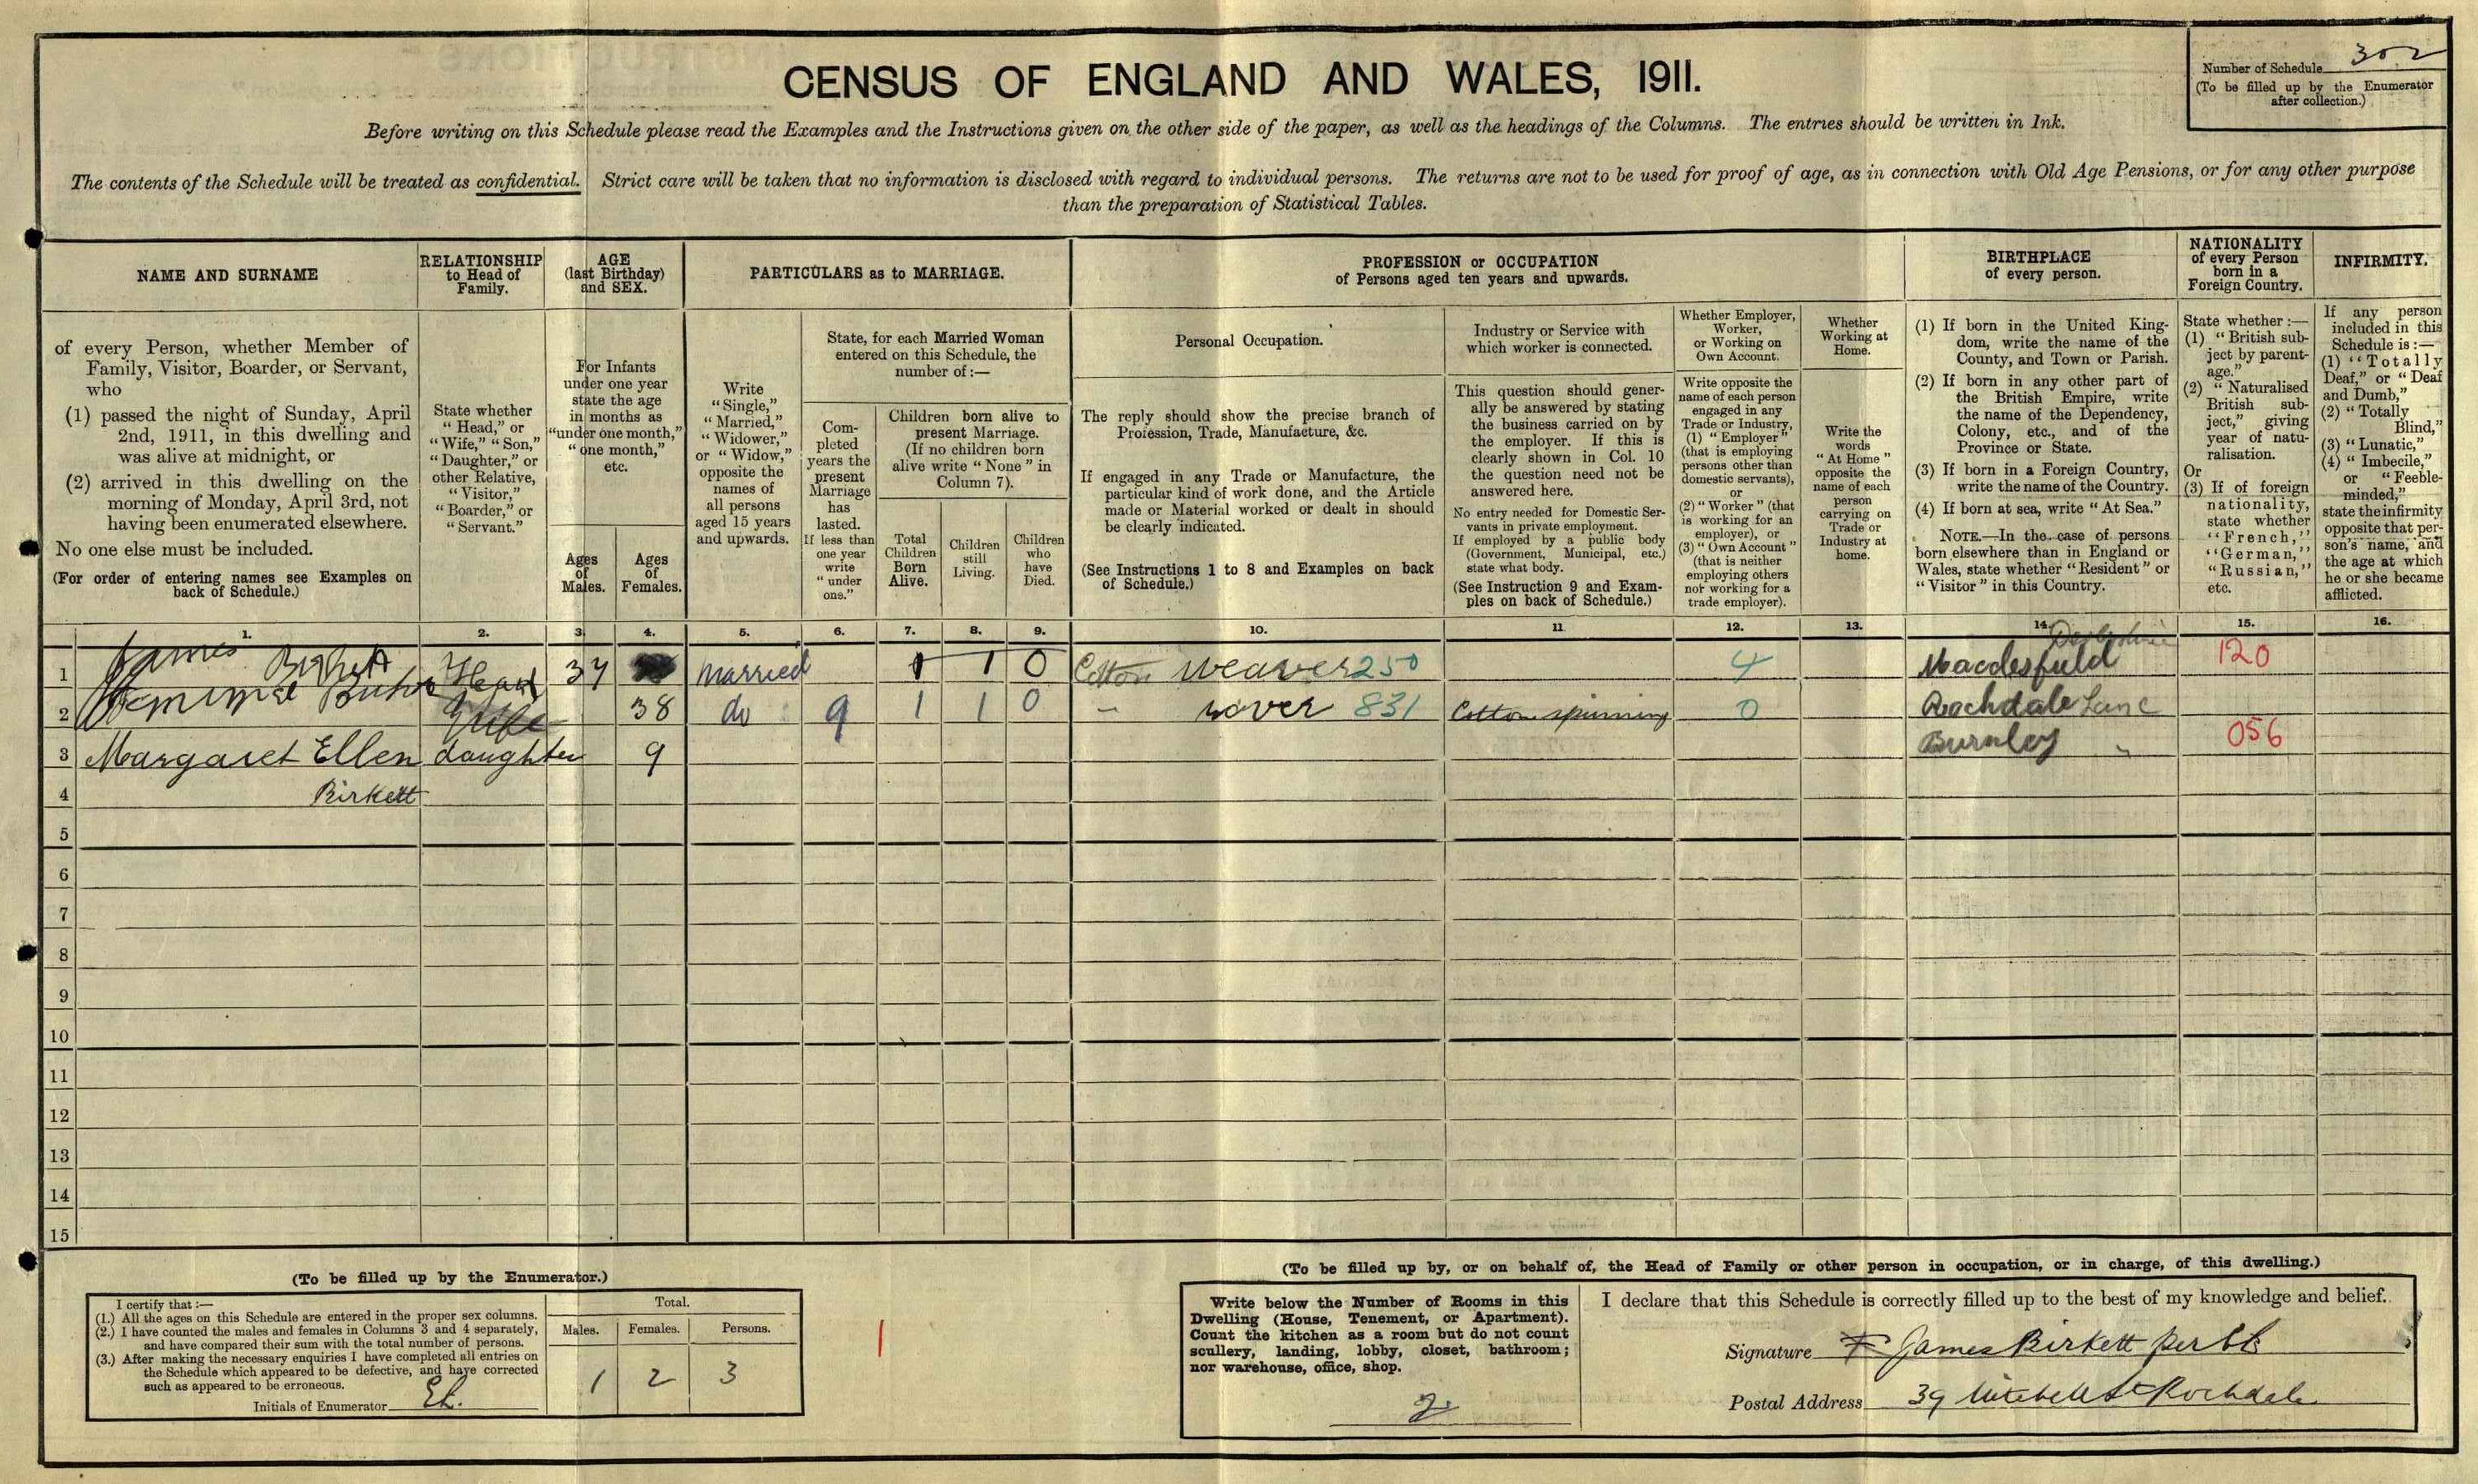 Number of Schedule 302
(To be filled up by the Enumerator
after collection.)
CENSUS OF ENGLAND AND WALES, 1911.
Before writing on this Schedule please read the Examples and the Instructions given on the other side of the paper, as well as the headings of the Columns. The entries should be written in Ink.
The contents of the Schedule will be treated as confidential. Strict care will be taken that no information is disclosed with regard to individual persons. The returns are not to be used for proof of age, as in connection with Old Age Pensions, or for any other purpose
than the preparation of Statistical Tables.
NAME AND SURNAME
of every Person, whether Member of
Family, Visitor, Boarder, or Servant,
who
(1) passed the night of Sunday, April
2nd, 1911, in this dwelling and
was alive at midnight, or
(2) arrived in this dwelling on the
morning of Monday, April 3rd, not
having been enumerated elsewhere.
No one else must be included.
(For order of entering names see Examples on
back of Schedule.)
RELATIONSHIP
to Head of
Family.
State whether
"Head," or
"Wife," "Son,"
"Daughter," or
other Relative,
"Visitor,"
"Boarder," or
"Servant."
AGE
(last Birthday)
and SEX.
For Infants
under one year
state the age
in months as
"under one month,"
"one month,"
etc.
Ages
of
Males.
Ages
of
Females.
PARTICULARS as to MARRIAGE.
Write
"Single,"
"Married,"
"Widower,"
or "Widow,"
opposite the
names of
all persons
aged 15 years
and upwards.
State, for each Married Woman
entered on this Schedule, the
number of:—
Com-
pleted
years the
present
Marriage
has
lasted.
If less than
one year
write
"under
one."
Children born alive to
present Marriage.
(If no children born
alive write "None" in
Column 7).
Total
Children
Born
Alive.
Children
still
Living.
Children
who
have
Died.
PROFESSION or OCCUPATION
of Persons aged ten years and upwards.
Personal Occupation.
The reply should show the precise branch of
Profession, Trade, Manufacture, &c.
If engaged in any Trade or Manufacture, the
particular kind of work done, and the Article
made or Material worked or dealt in should
be clearly indicated.
(See Instructions 1 to 8 and Examples on back
of Schedule.)
Industry or Service with
which worker is connected.
This question should gener-
ally be answered by stating
the business carried on by
the employer. If this is
clearly shown in Col. 10
the question need not be
answered here.
No entry needed for Domestic Ser-
vants in private employment.
If employed by a public body
(Government, Municipal, etc.)
state what body.
(See Instruction 9 and Exam-
ples on back of Schedule.)
Whether Employer,
Worker,
or Working on
Own Account.
Write opposite the
name of each person
engaged in any
Trade or Industry,
(1) "Employer"
(that is employing
persons other than
domestic servants),
or
(2) "Worker" (that
is working for an
employer), or
(3) "Own Account"
(that is neither
employing others
nor working for a
trade employer).
Whether
Working at
Home.
Write the
words
"At Home"
opposite the
name of each
person
carrying on
Trade or
Industry at
home.
BIRTHPLACE
of every person.
(1) If born in the United King-
dom, write the name of the
County, and Town or Parish.
(2) If born in any other part of
the British Empire, write
the name of the Dependency,
Colony, etc., and of the
Province or State.
(3) If born in a Foreign Country,
write the name of the Country.
(4) If born at sea, write "At Sea."
NOTE.—In the case of persons
born elsewhere than in England or
Wales, state whether "Resident" or
"Visitor" in this Country.
NATIONALITY
of every Person
born in a
Foreign Country.
State whether :—
(1) "British sub-
ject by parent-
age."
(2) "Naturalised
British sub-
ject," giving
year of natu-
ralisation.
Or
(3) If of foreign
nationality,
state whether
"French,"
"German,"
"Russian,"
etc.
INFIRMITY.
If any person
included in this
Schedule is:—
(1) "Totally
Deaf," or "Deaf
and Dumb,"
(2) "Totally
Blind,"
(3) "Lunatic,"
(4) "Imbecile,"
or "Feeble-
minded,"
state the infirmity
opposite that per-
son's name, and
the age at which
he or she became
afflicted.
1. 2. 3. 4. 5. 6. 7. 8. 9. 10. 11 12. 13. 14. 15. 16.
1 James Birkett Head 37 Married 1 1 0 Cotton Weaver 250 4 Macclesfield 120
2 Wife 38 do 9 1 1 0 – rover 831 Cotton spinning 0 Rochdale Lanc
3 Margaret Ellen daughter 9 Burnley " 056
4 Birkett
5
6
7
8
9
10
11
12
13
14
15
(To be filled up by the Enumerator.)
I certify that :—
(1.) All the ages on this Schedule are entered in the proper sex columns.
(2.) I have counted the males and females in Columns 3 and 4 separately,
and have compared their sum with the total number of persons.
(3.) After making the necessary enquiries I have completed all entries on
the Schedule which appeared to be defective, and have corrected
such as appeared to be erroneous.
Initials of Enumerator
Total.
Males. Females. Persons.
1 2 3
(To be filled up by, or on behalf of, the Head of Family or other person in occupation, or in charge, of this dwelling.)
Write below the Number of Rooms in this
Dwelling (House, Tenement, or Apartment).
Count the kitchen as a room but do not count
scullery, landing, lobby, closet, bathroom;
nor warehouse, office, shop.
2
I declare that this Schedule is correctly filled up to the best of my knowledge and belief.
Signature James Birkett per
Postal Address 39 Mitchell St Rochdale